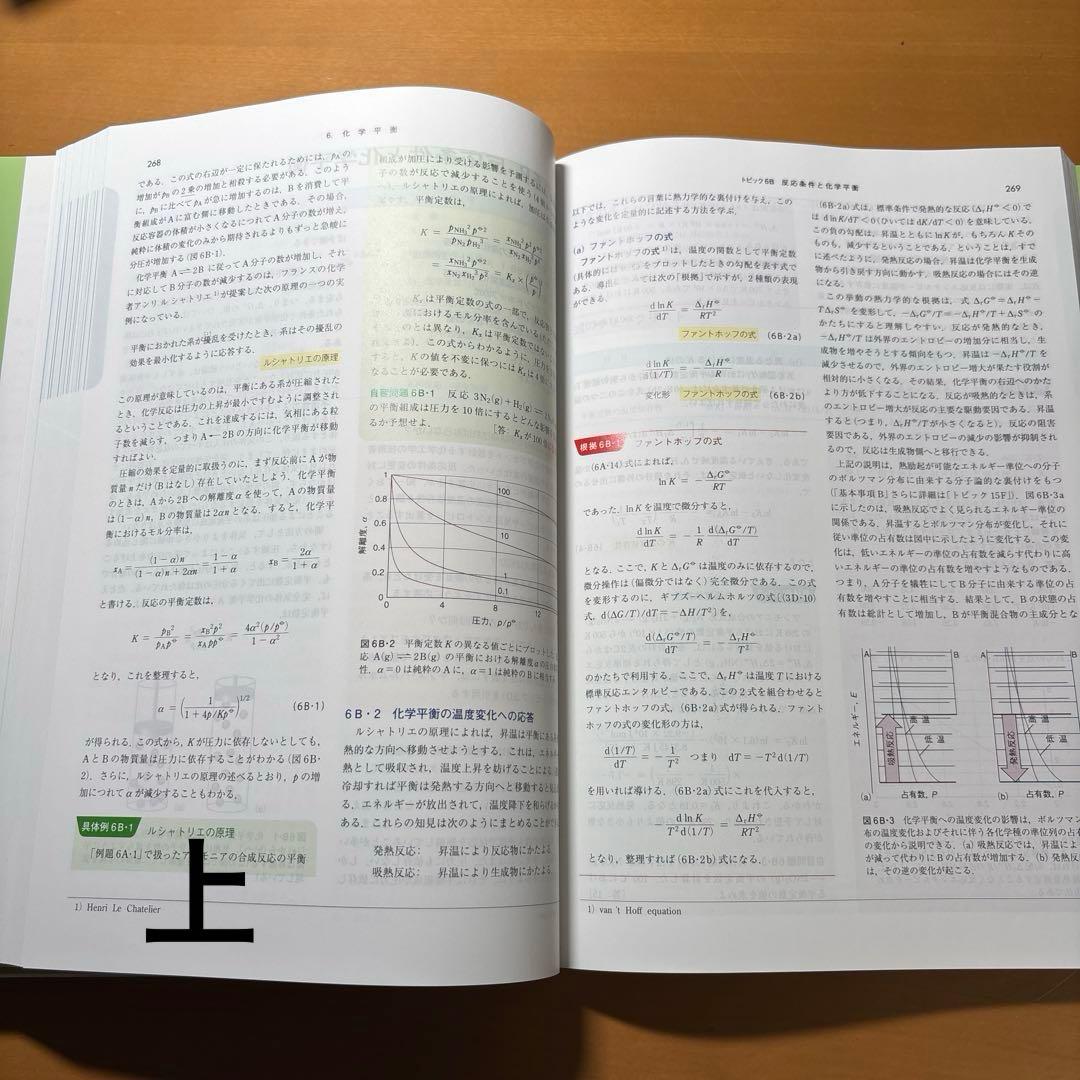 6. 化 学 平 衡
268
である．この式の右辺が一定に保たれるためには，pAの
増加がpBの2乗の増加と相殺する必要がある．このよう
に，pBに比べてpAが急に増加するのは，Bを消費して平
衡組成がAに富む側に移動したときである．その場合，
反応容器の体積が小さくなるにつれてA分子の数が増え，
純粋に体積の変化のみから期待されるよりもずっと急峻に
分圧が増加する(図6B·1)．
化学平衡 A⇌2B に従ってA分子の数が増加し，それ
に対応してB分子の数が減少するのは，フランスの化学
者アンリ ルシャトリエ1)が提案した次の原理の一つの実
例になっている．
平衡におかれた系が擾乱を受けたとき，系はその擾乱の
効果を最小化するように応答する．
ルシャトリエの原理
この原理が意味しているのは，平衡にある系が圧縮された
とき，化学反応は圧力の上昇が最小ですむように調整され
るということである．これを達成するには，気相にある粒
子数を減らす，つまりA←2Bの方向に化学平衡が移動
すればよい．
圧縮の効果を定量的に取扱うのに，まず反応前にAが物
質量nだけ(Bはなし)存在していたとしよう．化学平衡
のときは，Aから2Bへの解離度αを使って，Aの物質量
は(1−α)n，Bの物質量は2αnとなる．すると，化学平
衡におけるモル分率は，
xA = (1−α)n/((1−α)n+2αn) = (1−α)/(1+α)　xB = 2α/(1+α)
と書ける．反応の平衡定数は，
K = pB²/(pA p⦵) = xB²p²/(xA pp⦵) = 4α²(p/p⦵)/(1−α²)
となり，これを整理すると，
α = (1/(1+4p/Kp⦵))^1/2　(6B·1)
が得られる．この式から，Kが圧力に依存しないとしても，
AとBの物質量は圧力に依存することがわかる(図6B·
2)．さらに，ルシャトリエの原理の述べるとおり，pの増
加につれてαが減少することもわかる．
具体例 6B·1　ルシャトリエの原理
「例題6A·1」で扱ったア モニアの合成反応の平衡
上
1) Henri Le Chatelier
組成が加圧により受ける影響を予測する
子の数が反応で減少することを使う
へ)．ルシャトリエの原理によれば，加圧
平衡定数は，
K = pNH3² p⦵²/(pN2 pH2³) = xNH3² p² p⦵²
= xNH3² p⦵²/(xN2 xH2³ p²) = Kx × (p⦵²/p²)
Kxは平衡定数の式の一部で，反応
におけるモル分率を含んでいる
のとは異なり，Kxは平衡定数ではない
この式からわかるように，圧力を
すると，Kの値を不変に保つにはKxは4倍に
なることが必要である．
自習問題 6B·1　反応 3N2(g)+H2(g)⇌
の平衡組成は圧力を10倍にするとどんな影響
るか予想せよ．
[答：Kxが100
1
0.8
0.6
0.4
0.2
0
0 4 8 12
100
10
1
0.1
解離度, α
圧力, p/p⦵
図6B·2　平衡定数Kの異なる値ごとにプロット
応 A(g)⇌2B(g) の平衡における解離度αの圧力
性．α=0は純粋のAに，α=1は純粋のBに相当
6B·2　化学平衡の温度変化への応答
ルシャトリエの原理によれば，昇温は平衡に
熱的な方向へ移動させようとする．これは，エネル
熱として吸収され，温度上昇を妨げることによる．
冷却すれば平衡は発熱する方向へと移動すると
る．エネルギーが放出されて，温度降下を和らげ
ある．これらの知見は次のようにまとめることがで
発熱反応：　昇温により反応物にかたよる．
吸熱反応：　昇温により生成物にかたよる．
トピック6B　反応条件と化学平衡
269
以下では，これらの言葉に熱力学的な裏付けを与え，この
ような変化を定量的に記述する方法を学ぶ．
(a) ファントホッフの式
ファントホッフの式1)は，温度の関数として平衡定数
(具体的には をプロットしたときの勾配を表す式で
ある．導出 ては次の「根拠」で示すが，2種類の表現
ができる．
d ln K/dT = ΔrH⦵/RT²
ファントホッフの式　(6B·2a)
d ln K/d(1/T) = −ΔrH⦵/R
変化形　ファントホッフの式　(6B·2b)
根拠 6B·1　ファントホッフの式
(6A·14)式によれば，
ln K = −ΔrG⦵/RT
であった．ln Kを温度で微分すると，
d ln K/dT = −1/R d(ΔrG⦵/T)/dT
となる．ここで，KとΔrG⦵は温度のみに依存するので，
微分操作は(偏微分ではなく)完全微分である．この式
を変形するのに，ギブズ-ヘルムホルツの式〔(3D·10)
式，d(ΔG/T)/dT=−ΔH/T²〕を，
d(ΔrG⦵/T)/dT = −ΔrH⦵/T²
のかたちで利用する．ここで，ΔrH⦵は温度Tにおける
標準反応エンタルピーである．この2式を組合わせると
ファントホッフの式，(6B·2a)式が得られる．ファント
ホッフの式の変化形の方は，
d(1/T)/dT = −1/T²　つまり　dT=−T²d(1/T)
を用いれば導ける．(6B·2a)式にこれを代入すると，
−d ln K/T²d(1/T) = ΔrH⦵/RT²
となり，整理すれば(6B·2b)式になる．
1) van 't Hoff equation
(6B·2a)式は，標準条件で発熱的な反応(ΔrH⦵<0)で
は d ln K/dT<0(ひいてはdK/dT<0)を意味している．
この負の勾配は，昇温とともにln Kが，もちろんKその
ものも，減少するということである．ということは，すで
に述べたように，発熱反応の場合，昇温は化学平衡を生成
物から引き戻す方向に動かす．吸熱反応の場合にはその逆
になる．
この挙動の熱力学的な根拠は，式 ΔrG⦵=ΔrH⦵−
TΔrS⦵ を変形して，−ΔrG⦵/T=−ΔrH⦵/T+ΔrS⦵の
かたちにすると理解しやすい．反応が発熱的なとき，
−ΔrH⦵/Tは外界のエントロピーの増加分に相当し，生
成物を増やそうとする傾向をもつ．昇温は−ΔrH⦵/Tを
減少させるので，外界のエントロピー増大が果たす役割が
相対的に小さくなる．その結果，化学平衡の右辺へのかた
より方が低下することになる．反応が吸熱的なときは，系
のエントロピー増大が反応の主要な駆動要因である．昇温
すると(つまり，ΔrH⦵/Tが小さくなると)，反応の阻害
要因である，外界のエントロピーの減少の影響が抑制され
るので，反応は生成物側へと移行できる．
上記の説明は，熱励起が可能なエネルギー準位への分子
のボルツマン分布に由来する分子論的な裏付けをもつ
(「基本事項B」さらに詳細は「トピック15F」)．図6B·3a
に示したのは，吸熱反応でよく見られるエネルギー準位の
関係である．昇温するとボルツマン分布が変化し，それに
従い準位の占有数は図中に示したように変化する．この変
化は，低いエネルギーの準位の占有数を減らす代わりに高
いエネルギーの準位の占有数を増やすようなものである．
つまり，A分子を犠牲にしてB分子に由来する準位の占
有数を増やすことに相当する．結果として，Bの状態の占
有数は総計として増加し，Bが平衡混合物の主成分とな
A B A B
エネルギー, E
吸熱反応
高温
低温
発熱反応
高温
低温
(a) 占有数, P (b) 占有数, P
図6B·3　化学平衡への温度変化の影響は，ボルツマン
布の温度変化およびそれに伴う各化学種の準位列の占
の変化から説明できる．(a) 吸熱反応では，昇温によ
が減って代わりにBの占有数が増加する．(b) 発熱反
は，その逆の変化が起こる．